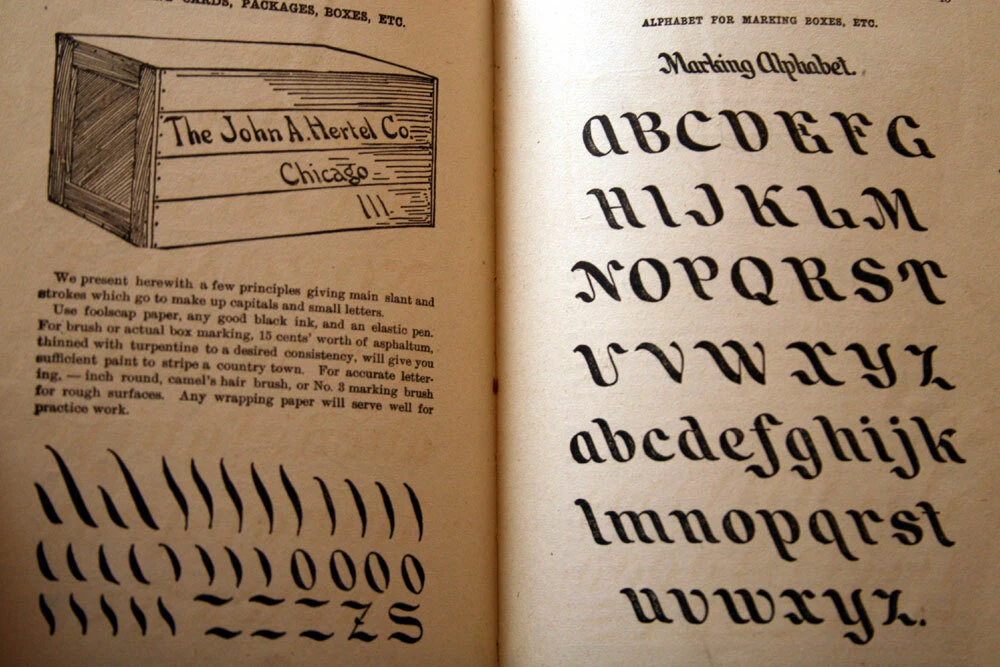 CARDS, PACKAGES, BOXES, ETC.
The John A. Hertel Co
Chicago
Ill.
We present herewith a few principles giving main slant and
strokes which go to make up capitals and small letters.
Use foolscap paper, any good black ink, and an elastic pen.
For brush or actual box marking, 15 cents' worth of asphaltum,
thinned with turpentine to a desired consistency, will give you
sufficient paint to stripe a country town. For accurate letter-
ing, — inch round, camel's hair brush, or No. 3 marking brush
for rough surfaces. Any wrapping paper will serve well for
practice work.
O O O O
Z S
ALPHABET FOR MARKING BOXES, ETC.
Marking Alphabet.
A B C D E F G
H I J K L M
N O P Q R S T
U V W X Y Z
a b c d e f g h i j k
l m n o p q r s t
u v w x y z.